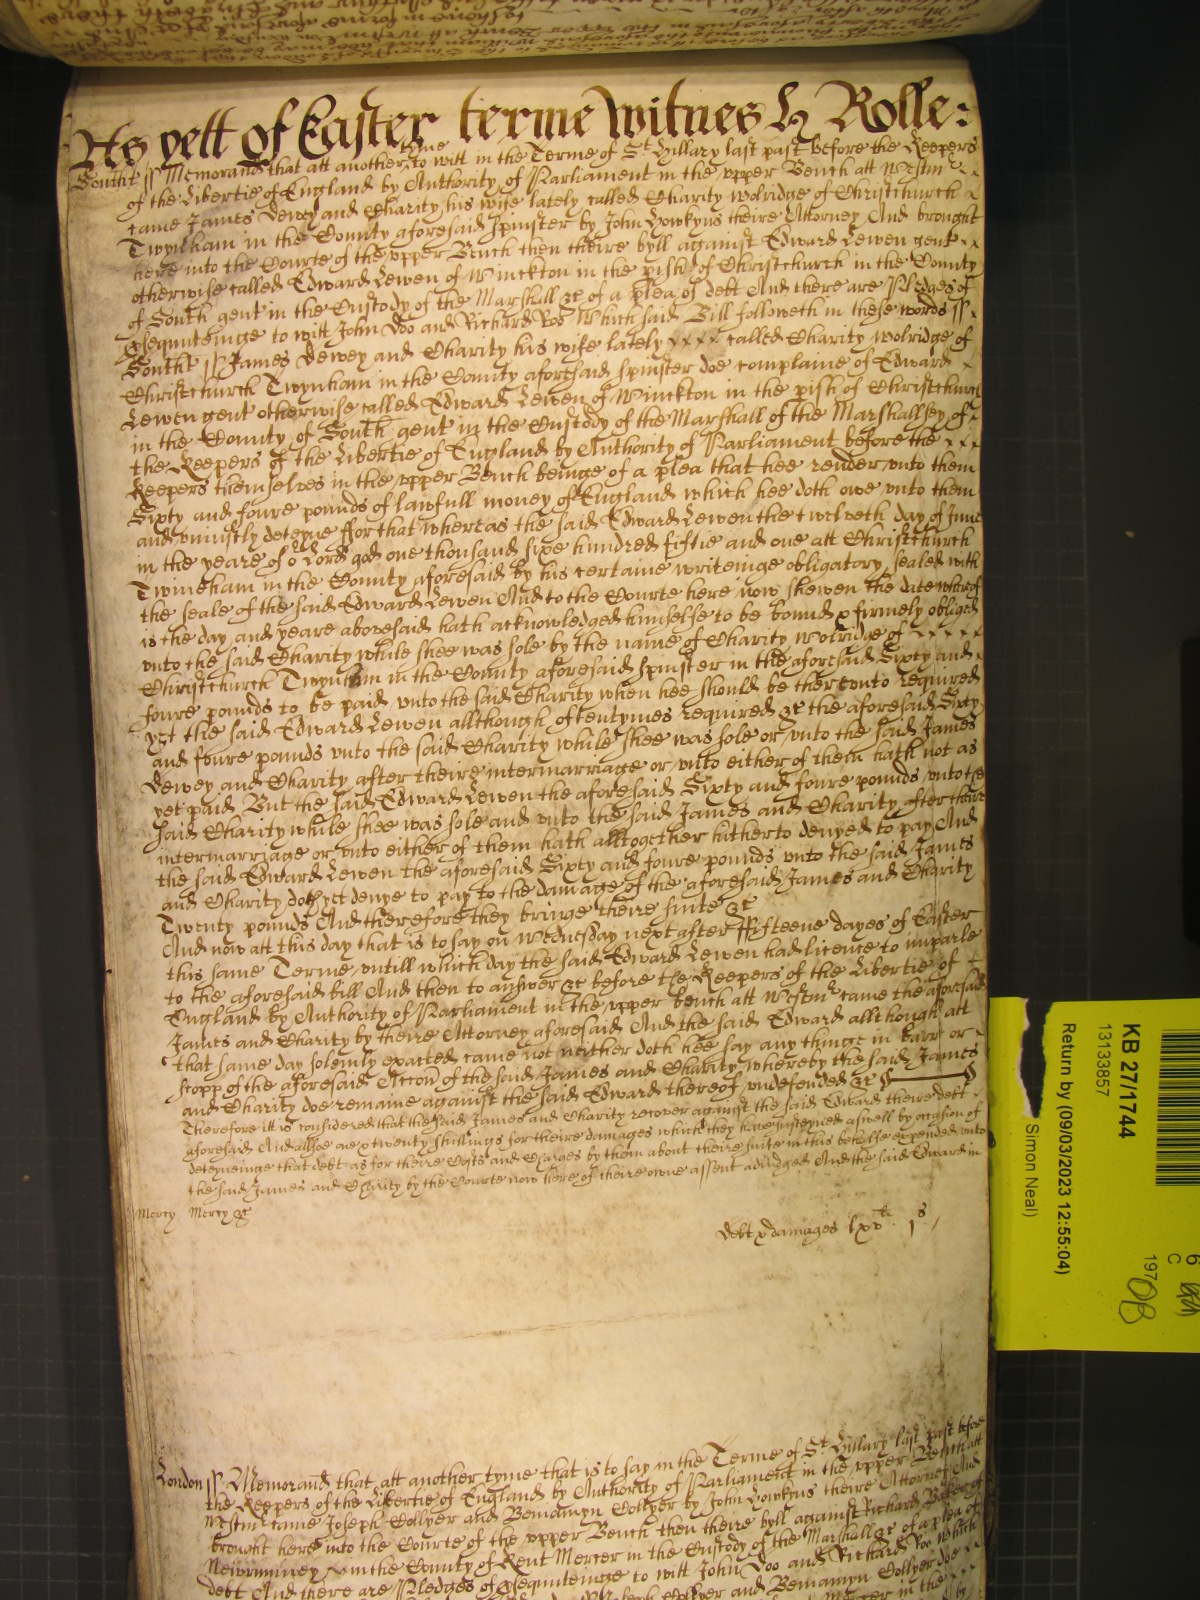 As yett of Easter terme Witnes H Rolle:
Southt ss Memorand that att another tyme to witt in the Terme of St Hillary last past before the Keepers
of the Libertie of England by Authority of Parliament in the vpper Bench att Westmr
came James Dewey and Charity his wife lately called Charity Wolridge of Christchurch
Twynham in the County aforesaid Spinster by John Howkyns theire Attorney And brought
here into the Courte of the vpper Bench then theire byll against Edward Lewen gent
otherwise called Edward Lewen of Winckton in the pish of Christchurch in the County
of South gent in the Custody of the Marshall &c of a plea of debt And there are Pledges of
psequuteinge to witt John Doo and Richard Roo Which said Bill followeth in these words ss
Southt ss James Dewey and Charity his wife lately called Charity Wolridge of
Christchurch Twynham in the County aforesaid Spinster doe complaine of Edward
Lewen gent otherwise called Edward Lewen of Winckton in the pish of Christchurch
in the County of South gent in the Custody of the Marshall of the Marshallsey of
the Keepers of the Libertie of England by Authority of Parliament before the
Keepers themselves in the vpper Bench beinge of a plea that hee render vnto them
Sixty and foure pounds of lawfull money of England which hee doth owe vnto them
and vniustly deteyne ffor that whereas the said Edward Lewen the twelveth day of June
in the yeare of or Lord god one thousand sixe hundred fiftie and one att Christchurch
Twineham in the County aforesaid by his certaine writeinge obligatory sealed with
the seale of the said Edward Lewen And to the Courte here now shewen the date whereof
is the day and yeare abovesaid hath acknowledged himselfe to be bound & firmely obliged
vnto the said Charity while shee was sole by the name of Charity Wolridge of
Christchurch Twynham in the County aforesaid Spinster in the aforesaid Sixty and
foure pounds to be paid vnto the said Charity when hee should be therevnto required
yet the said Edward Lewen allthough oftentymes required &c the aforesaid Sixty
and foure pounds vnto the said Charity while shee was sole or vnto the said James
Dewey and Charity after theire intermarriage or vnto either of them hath not as
yet paid But the said Edward Lewen the aforesaid Sixty and foure pounds vnto the
said Charity while shee was sole and vnto the said James and Charity after theire
intermarriage or vnto either of them hath alltogether hitherto denyed to pay And
the said Edward Lewen the aforesaid Sixty and foure pounds vnto the said James
and Charity doth yet denye to pay to the damage of the aforesaid James and Charity
Twenty pounds And therefore they bringe theire suite &c
And now att this day that is to say on Wednesday next after ffifteene dayes of Easter
this same Terme vntill which day the said Edward Lewen had licence to imparle
to the aforesaid bill And then to answer &c before the Keepers of the Libertie of
England by Authority of Parliament in the vpper bench att Westmr came the aforesaid
James and Charity by theire Attorney aforesaid And the said Edward allthough att
that same day solemly exacted came not neither doth hee say any thinge in barr or
stopp of the aforesaid Accon of the said James and Charity whereby the said James
and Charity doe remaine against the said Edward thereof vndefended &c
Therefore itt is considered that the said James and Charity recover against the said Edward theire debt
aforesaid And allsoe twenty shillings for theire damages which they have susteyned aswell by occasion of
deteyneinge that debt as for theire Costs and Charges by them about theire suite in this behalfe expended vnto
the said James and Charity by the Courte now here of theire owne assent adiudged And the said Edward in
Mercy Mercy &c
Debt & damages lxvli s
London ss Memorand that att another tyme that is to say in the Terme of St Hillary last past before
the Keepers of the Libertie of England by Authority of Parliament in the vpper Bench att
Westmr came Joseph Collyer and Beniamyn Collyer by John Howkyns theire Attorney And
brought here into the Courte of the vpper Bench then theire byll against Richard
Newrumney in the County of Kent Mercer in the Custody of the Marshall &c of a plea of
debt And there are Pledges of psequuteinge to witt John Doo and Richard Roo Which
Collyer and Beniamyn Collyer doe
Mercer in the
KB 27/1744
13133857
Return by (09/03/2023 12:55:04)
Simon Neal)
6
C
197